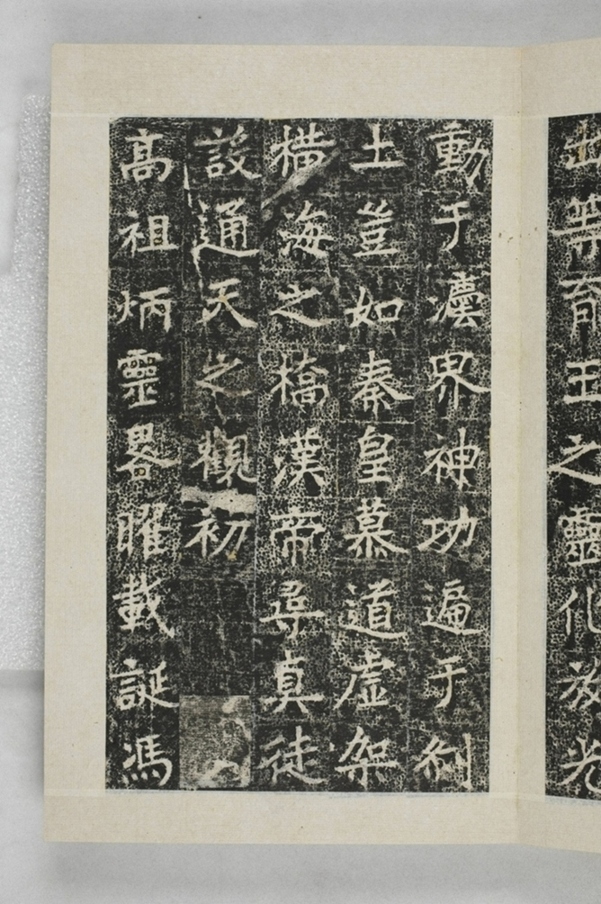 出等育王之靈化放光
動于界神功遍于刹
土豈如秦皇慕道虛架
橫海之橋漢帝尋真徒
設通天之觀初
高祖炳靈晷曜載誕馮